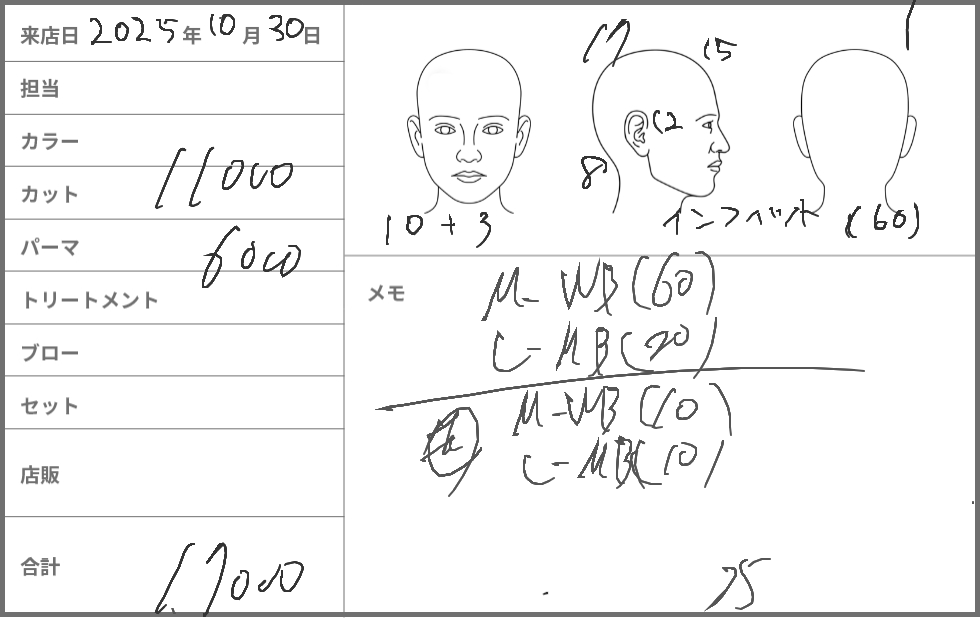 来店日 2025年10月30日
担当
カラー
カット 11000
パーマ 6000
トリートメント
ブロー
セット
店販
合計 17000
17
15
12
8
10+3
インフィット (60)
メモ
M-WB(60)
C-MB(20)
M-WB(10)
C-MB(10)
75